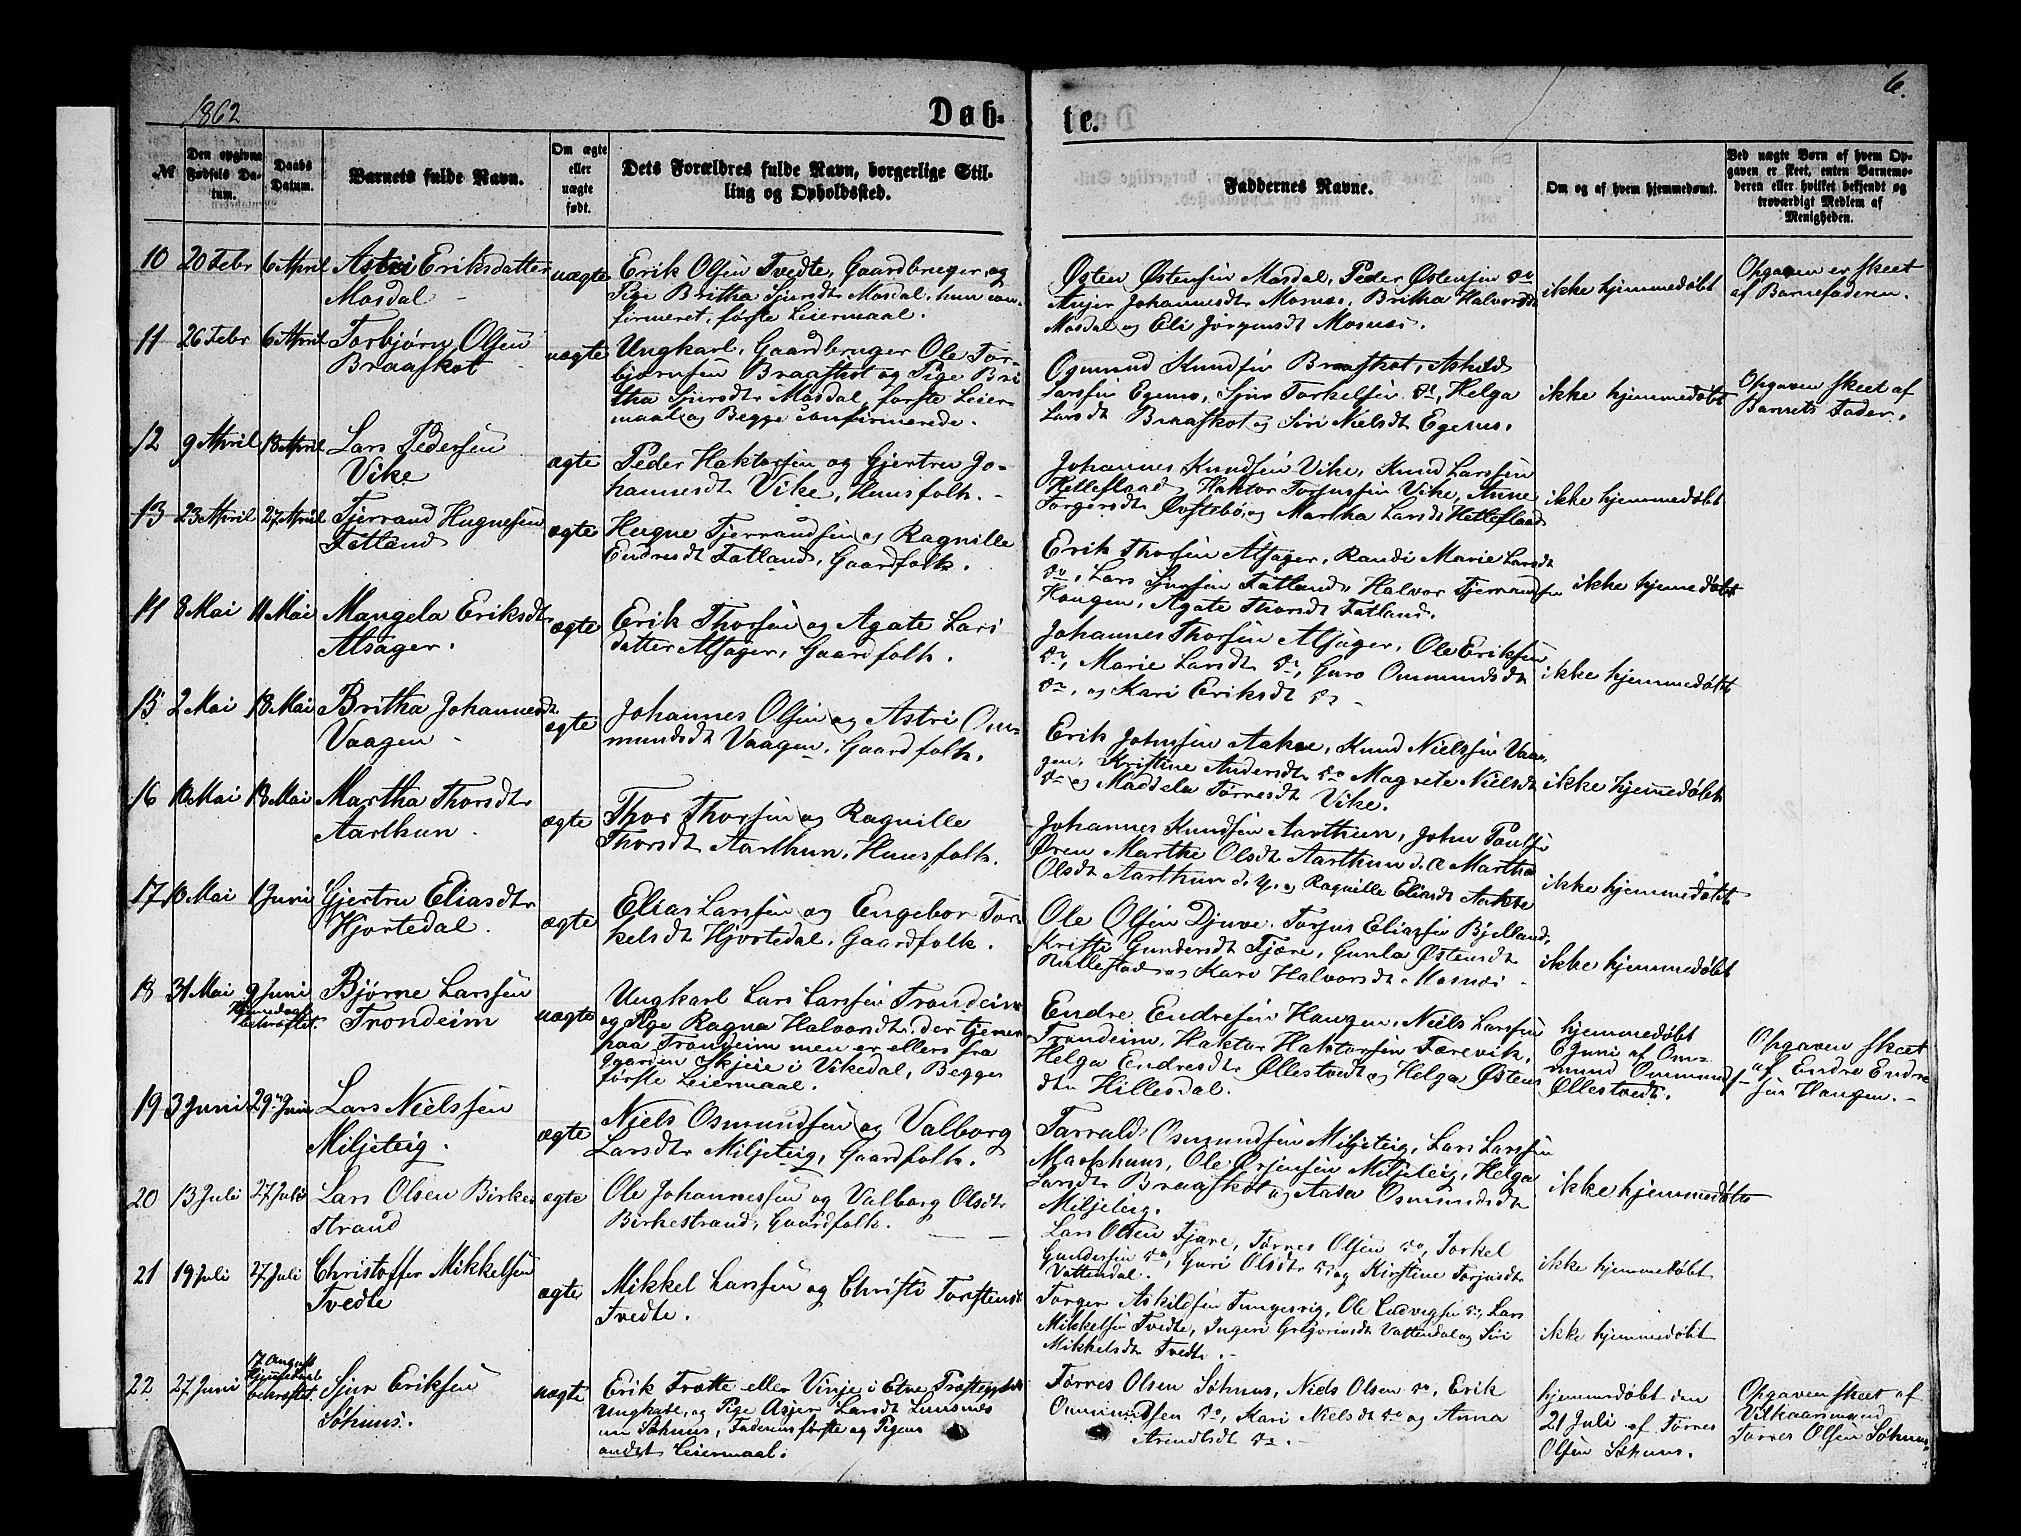 1862
Døb-
te.
6.
№
Den opgivne
Fødsels Da-
tum.
Daabs
Datum.
Barnets fulde Navn.
Om ægte
eller
uægte
født.
Dets Forældres fulde Navn, borgerlige Stil-
ling og Opholdssted.
Faddernes Navne.
Om og af hvem hjemmedømt.
Ved uægte Børn af hvem Op-
gaven er skeet, enten Barnemo-
deren eller hvilket bekjendt og
troværdigt Medlem af
Menigheden.
10 20 Febr 6 April Astri Eriksdatter
Mosdal
uægte
Erik Olsen Tvedte, Gaardbruger, og
Pige Britha Sjursdtr Mosdal, hun con-
firmeret, første Leiermaal.
Østen Østensen Mosdal, Peder Østensen do
Johannesdtr Mosnæs, Britha Halvorsdtr
Mosdal og Eli Jørgensdt Mosnæs.
ikke hjemmedøbt
Opgaven er skeet
af Barnefaderen.
11 26 Febr 6 April Torbjørn Olsen
Braaskot
uægte
Ungkarl, Gaardbruger Ole Tor-
bjørnsen Braaskot og Pige Bri
tha Sjursdtr Mosdal, første Leier-
maal og Begge confirmerede.
Ogmund Knudsen Braaskot, Askild
Larssen Egenes, Sjur Torkelsen do, Helga
Larsdt Braaskot og Siri Nielsdt Egenes.
ikke hjemmedøbt
Opgaven skeet af
Barnets Fader.
12 9 April 18 April Lars Pedersen
Vike
ægte
Peder Haktorsen og Gjertru Jo-
hannesdt Vike, Huusfolk.
Johannes Knudsen Vike, Knud Larssen
Helleflaad, Haktor Torjussen Vike, Anne
Torgersdtr Østebø og Martha Larsdt Helleflaad
ikke hjemmedøbt
13 23 April 27 April Tjerrand Hugnesen
Fatland
ægte
Hugne Tjerrandsen og Ragnille
Endresdt Fatland, Gaardfolk.
Erik Thorsen Alsager, Randi Marie Larsdt
do, Lars Sjursen Fatland, Halvor Tjerrandsen
Haugen, Agate Thorsdt Fatland.
ikke hjemmedøbt
14 8 Mai 11 Mai Mangela Eriksdtr
Alsager.
ægte
Erik Thorsen og Agate Lars
datter Alsager, Gaardfolk.
Johannes Thorsen Alsager, Ole Eriksen
do, Marie Larsdt do, Guro Ommundsdt
do, og Kari Eriksdt do
ikke hjemmedøbt
15 2 Mai 18 Mai Britha Johannesdt
Vaagen
ægte
Johannes Olsen og Astri Om-
mundsdt Vaagen, Gaardfolk.
Erik Johnsen Aakre, Knud Nielssen Vaa-
gen, Kristine Andersdt do Magrete Nielsdt
do og Maddela Tørresdt Vike.
ikke hjemmedøbt
16 10 Mai 18 Mai Martha Thorsdtr
Aarthun.
ægte
Thor Thorsen og Ragnille
Thorsdt Aarthun, Huusfolk.
Johannes Knudsen Aarthun, John Paulsen
Øren Marthe Olsdt Aarthun d. Æ Martha
Olsdt Aarthun d. y. og Ragnille Eliasdt Aakre
ikke hjemmedøbt
17 10 Mai 1 Juni Gjertru Eliasdtr
Hjortedal.
ægte
Elias Larssen og Engebor Tor-
kelsdt Hjortedal, Gaardfolk.
Ole Olsen Djuve, Torjus Eliassen Bjelland,
Kristi Gundersdt Fjære, Gunla Østensdt
Rullestad og Kari Halvorsdt Mosnæs
ikke hjemmedøbt
18 31 Mai 9 Juni
Hjemmedaab
bekræftet.
Bjørne Larssen
Trondeim
uægte
Ungkarl Lars Larssen Trondeim
og Pige Ragna Halvorsdtr, der tjener
paa Trondeim men er ellers fra
gaarden Skjeie i Vikedal, Begges
første Leiermaal.
Endre Endresen Haugen, Niels Larssen
Trondeim, Haktor Haktorsen Færevik,
Helga Endresdtr Øllestvedt og Helga Østens
dtr Hillesdal.
hjemmedøbt
6 Juni af Om-
mund Ommunds-
Øllestvedt.
Opgaven skeet
af Endre Endre
sen Haugen.
19 3 Juni 29 Juni Lars Nielssen
Miljeteig.
ægte
Niels Osmundsen og Valborg
Larsdtr Miljeteig, Gaardfolk.
Tarrald Osmundsen Miljeteig, Lars Larssen
Markhuus, Ole Ørjensen Miljeteig, Helga
Larsdtr Braaskot og Aasa Osmundsdt
Miljeteig.
ikke hjemmedøbt
20 13 Juli 27 Juli Lars Olsen Birke
strand
ægte
Ole Johannessen og Valborg Olsdtr
Birkestrand, Gaardfolk.
Lars Olsen Fjære, Tørres Olsen do, Torkel
Gundersen do, Guri Olsdtr do og Kirstine Torjusdt
Vattendal.
ikke hjemmedøbt
21 19 Juli 27 Juli Christoffer Mikkelsen
Tvedte
ægte
Mikkel Larssen og Christi Torstensdt
Tvedte.
Torger Askildsen Tungesvig, Ole Ludvigsen do, Lars
Mikkelsen Tvedte, Ingeri Gregoriusdt Vattendal og Siri
Mikkelsdt Tvedte.
ikke hjemmedøbt
22 27 Juni 17 August
Hjemmedaab
bekræftet.
Sjur Eriksen
Søhuus.
uægte
Erik Trætte eller Vinje i Etne Præstegjeld
Ungkarl, og Pige Larsdt
Søhuus, Faderens første og Pigens
andet Leiermaal.
Tørres Olsen Søhuus, Niels Olsen do, Erik
Ommundsen do, Kari Nielsdt do og Anna
Arendtsdt do.
hjemmedøbt den
21 Juli af Tørres
Olsen Søhuus.
Opgaven skeet af
Vilkaarsmand
Tørres Olsen Søhuus